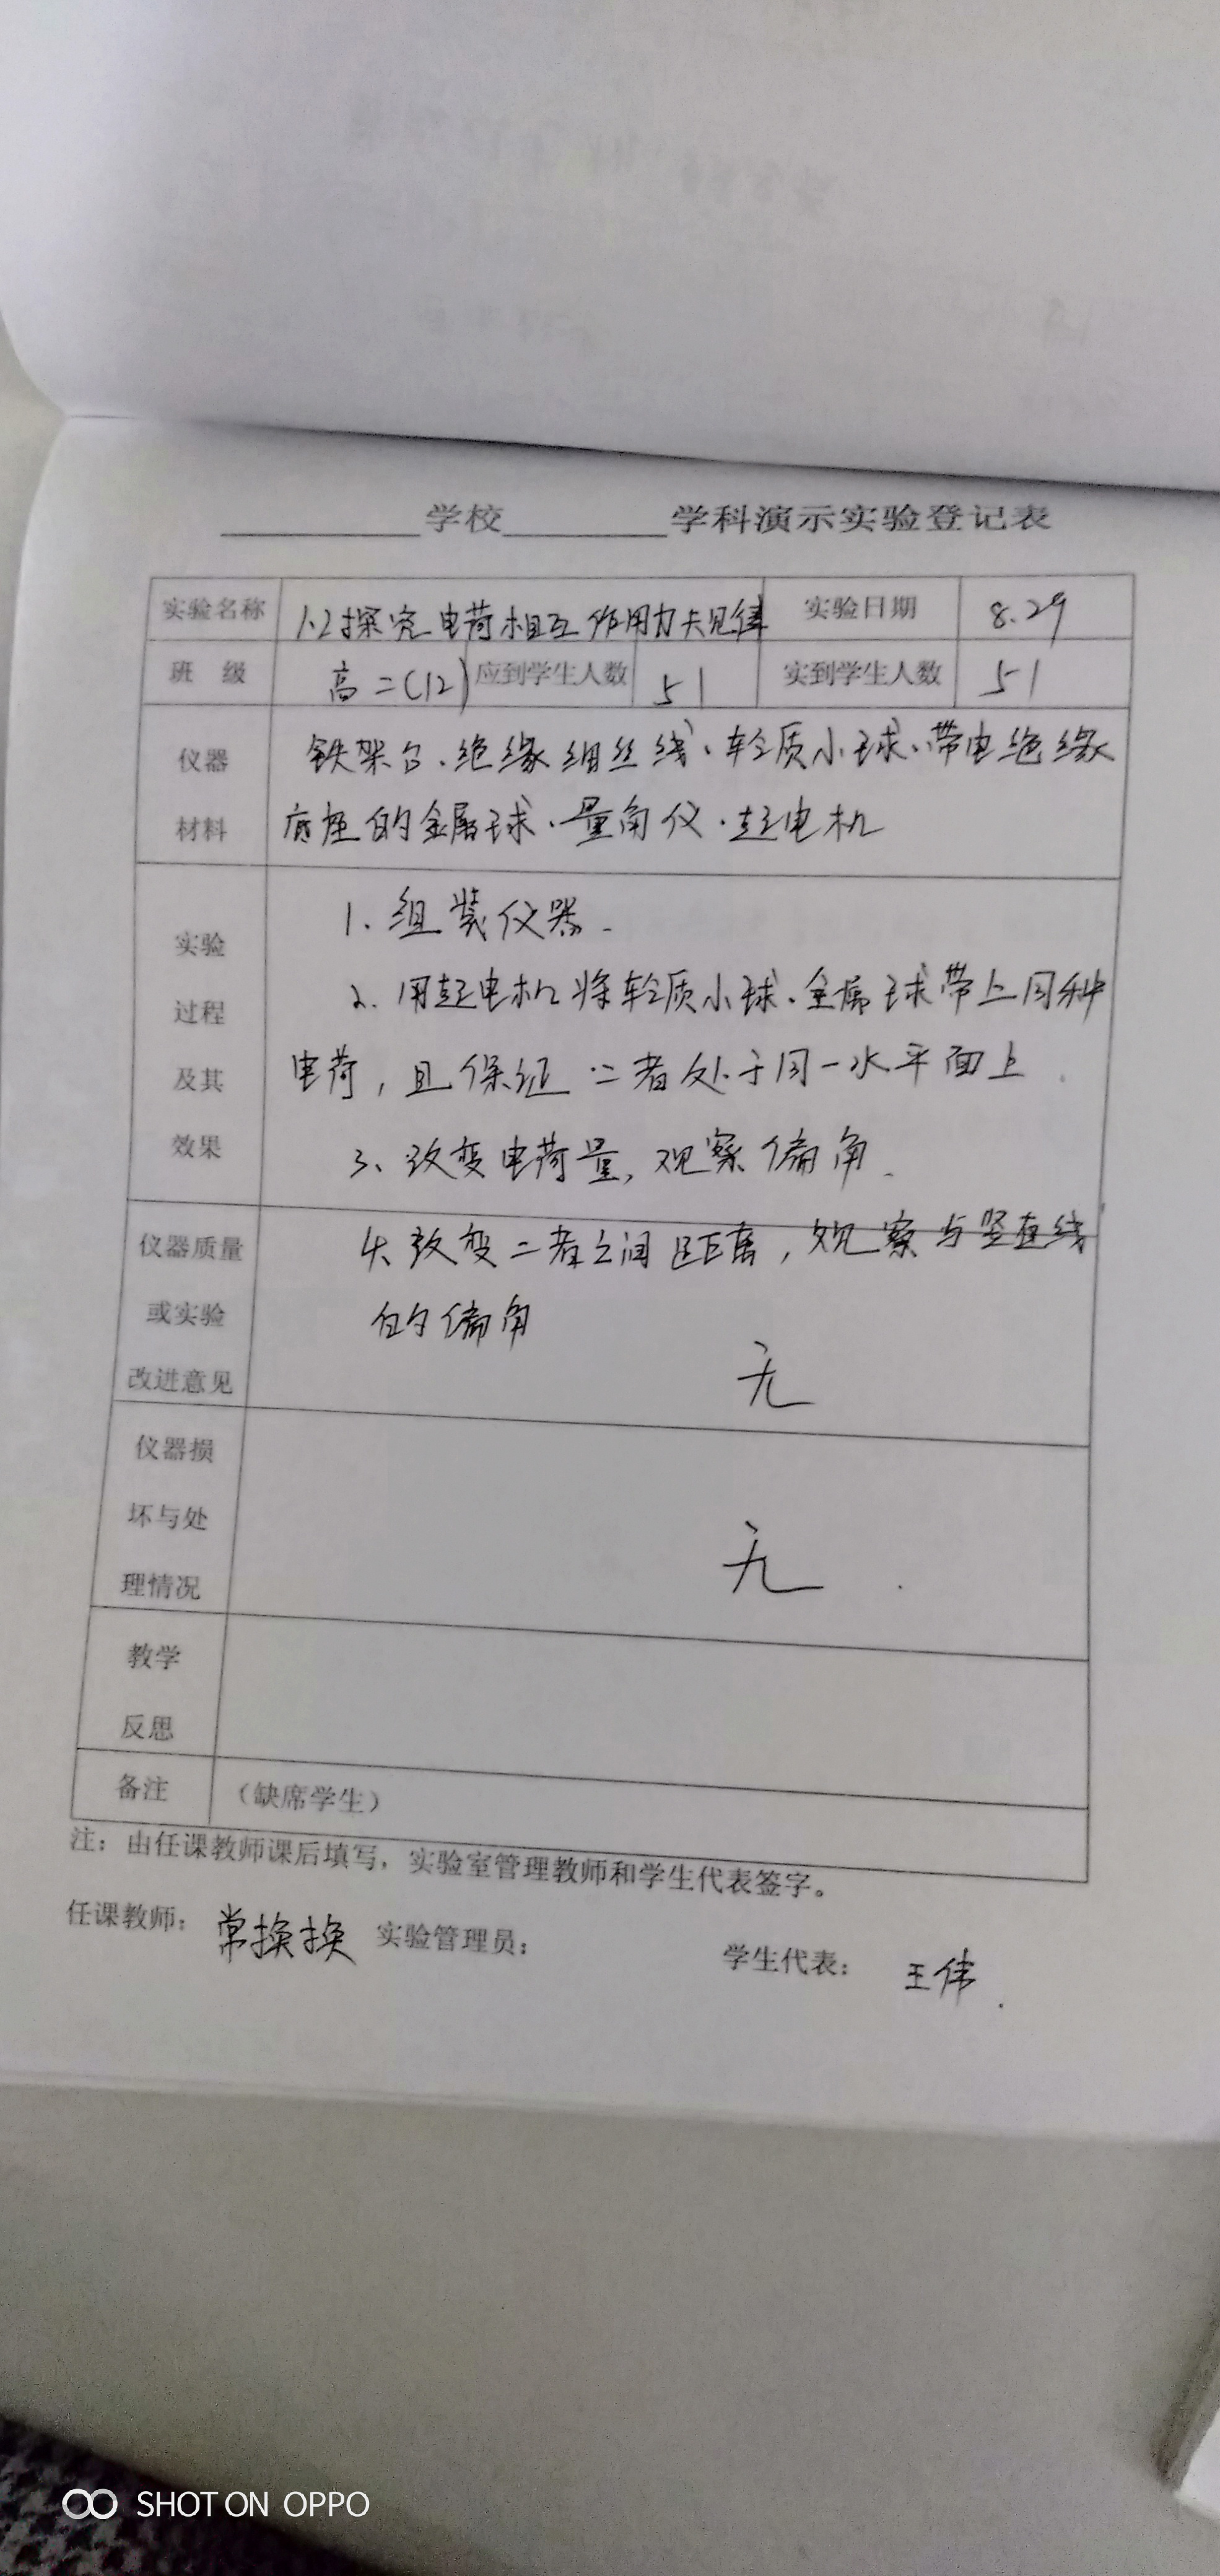 学校 学科演示实验登记表
实验名称 1.2探究电荷相互作用力规律 实验日期 8.29
班 级 高二(12) 应到学生人数 51 实到学生人数 51
仪器材料 铁架台、绝缘细丝线、轻质小球、带电绝缘
底座的金属球、量角仪、起电机
实验过程及其效果
1、组装仪器.
2、用起电机将轻质小球、金属球带上同种
电荷，且保证二者处于同一水平面上.
3、改变电荷量，观察偏角.
仪器质量或实验改进意见
4、改变二者之间距离，观察与竖直线
的偏角
无
仪器损坏与处理情况
无
教学反思
备注 （缺席学生）
注：由任课教师课后填写，实验室管理教师和学生代表签字。
任课教师：常换换 实验管理员： 学生代表：王伟.
SHOT ON OPPO